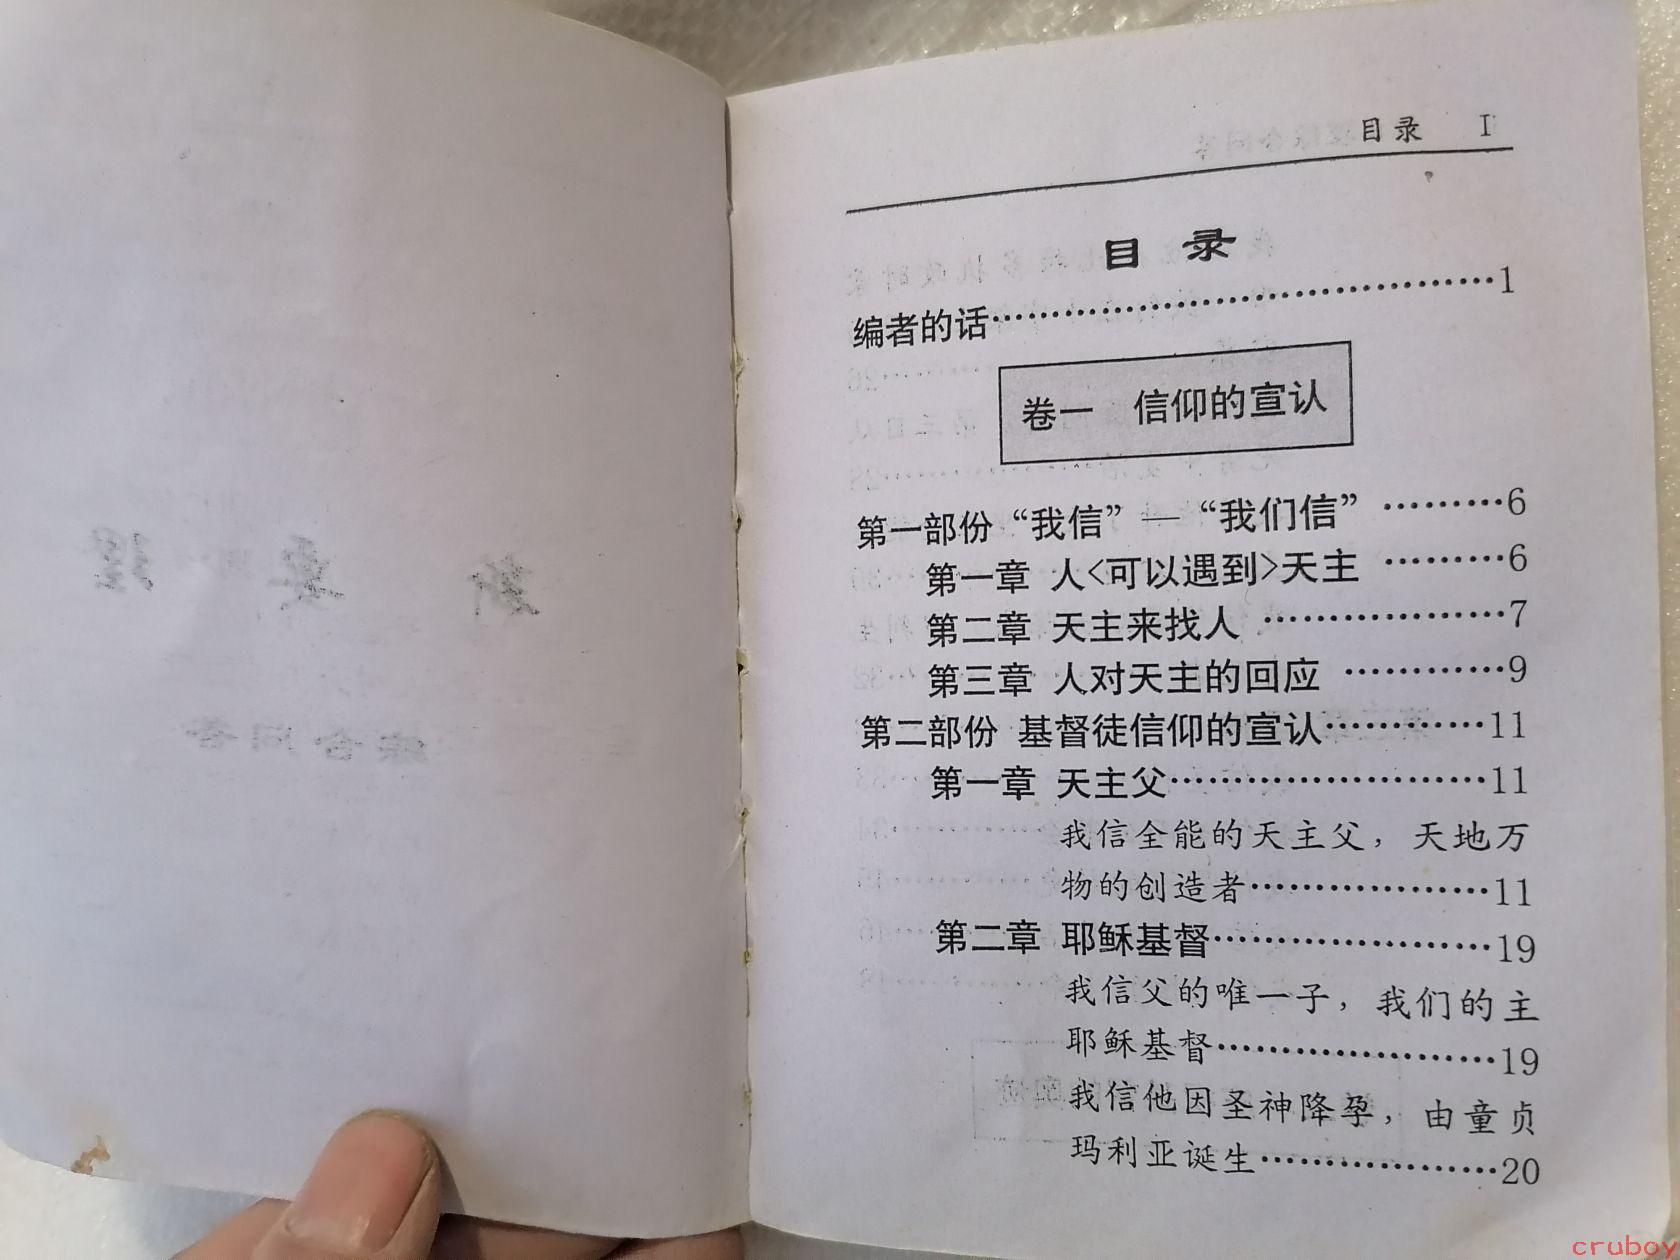 目录 I
目 录
编者的话·····································1
卷一 信仰的宣认
第一部份 “我信” — “我们信” ·········6
第一章 人<可以遇到>天主 ·········6
第二章 天主来找人 ··················7
第三章 人对天主的回应 ············9
第二部份 基督徒信仰的宣认·············11
第一章 天主父·························11
我信全能的天主父，天地万
物的创造者···················11
第二章 耶稣基督······················19
我信父的唯一子，我们的主
耶稣基督······················19
我信他因圣神降孕，由童贞
玛利亚诞生···················20
新 要理
综合问答
cruboy